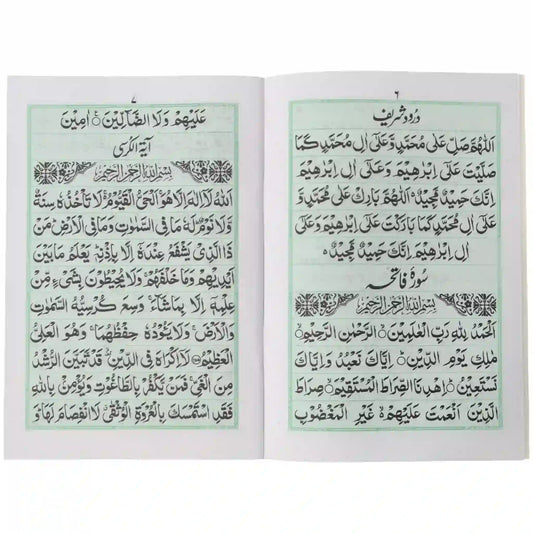 ٦
درود شریف
اَللّٰهُمَّ صَلِّ عَلٰی مُحَمَّدٍ وَّعَلٰٓی اٰلِ مُحَمَّدٍ كَمَا
صَلَّیْتَ عَلٰٓی اِبْرٰهِیْمَ وَعَلٰٓی اٰلِ اِبْرٰهِیْمَ
اِنَّكَ حَمِیْدٌ مَّجِیْدٌ اَللّٰهُمَّ بَارِكْ عَلٰی مُحَمَّدٍ وَّعَلٰٓی
اٰلِ مُحَمَّدٍ كَمَا بَارَكْتَ عَلٰٓی اِبْرٰهِیْمَ وَعَلٰٓی
اٰلِ اِبْرٰهِیْمَ اِنَّكَ حَمِیْدٌ مَّجِیْدٌ
سورۂ فاتحہ
بِسْمِ اللّٰهِ الرَّحْمٰنِ الرَّحِیْمِ
اَلْحَمْدُ لِلّٰهِ رَبِّ الْعٰلَمِیْنَ الرَّحْمٰنِ الرَّحِیْمِ
مٰلِكِ یَوْمِ الدِّیْنِ اِیَّاكَ نَعْبُدُ وَاِیَّاكَ
نَسْتَعِیْنُ اِهْدِنَا الصِّرَاطَ الْمُسْتَقِیْمَ صِرَاطَ
الَّذِیْنَ اَنْعَمْتَ عَلَیْهِمْ غَیْرِ الْمَغْضُوْبِ
٧
عَلَیْهِمْ وَلَا الضَّآلِّیْنَ اٰمِیْنَ
اٰیة الکرسی
بِسْمِ اللّٰهِ الرَّحْمٰنِ الرَّحِیْمِ
اَللّٰهُ لَآ اِلٰهَ اِلَّا هُوَ اَلْحَیُّ الْقَیُّوْمُ لَا تَاْخُذُهٗ سِنَةٌ
وَّلَا نَوْمٌ لَهٗ مَا فِی السَّمٰوٰتِ وَمَا فِی الْاَرْضِ مَنْ
ذَا الَّذِیْ یَشْفَعُ عِنْدَهٗٓ اِلَّا بِاِذْنِهٖ یَعْلَمُ مَا بَیْنَ
اَیْدِیْهِمْ وَمَا خَلْفَهُمْ وَلَا یُحِیْطُوْنَ بِشَیْءٍ مِّنْ
عِلْمِهٖٓ اِلَّا بِمَا شَآءَ وَسِعَ كُرْسِیُّهُ السَّمٰوٰتِ
وَالْاَرْضَ وَلَا یَئُوْدُهٗ حِفْظُهُمَا وَهُوَ الْعَلِیُّ
الْعَظِیْمُ لَآ اِكْرَاهَ فِی الدِّیْنِ قَدْ تَّبَیَّنَ الرُّشْدُ
مِنَ الْغَیِّ فَمَنْ یَّكْفُرْ بِالطَّاغُوْتِ وَیُؤْمِنْۢ بِاللّٰهِ
فَقَدِ اسْتَمْسَكَ بِالْعُرْوَةِ الْوُثْقٰی لَا انْفِصَامَ لَهَا وَ